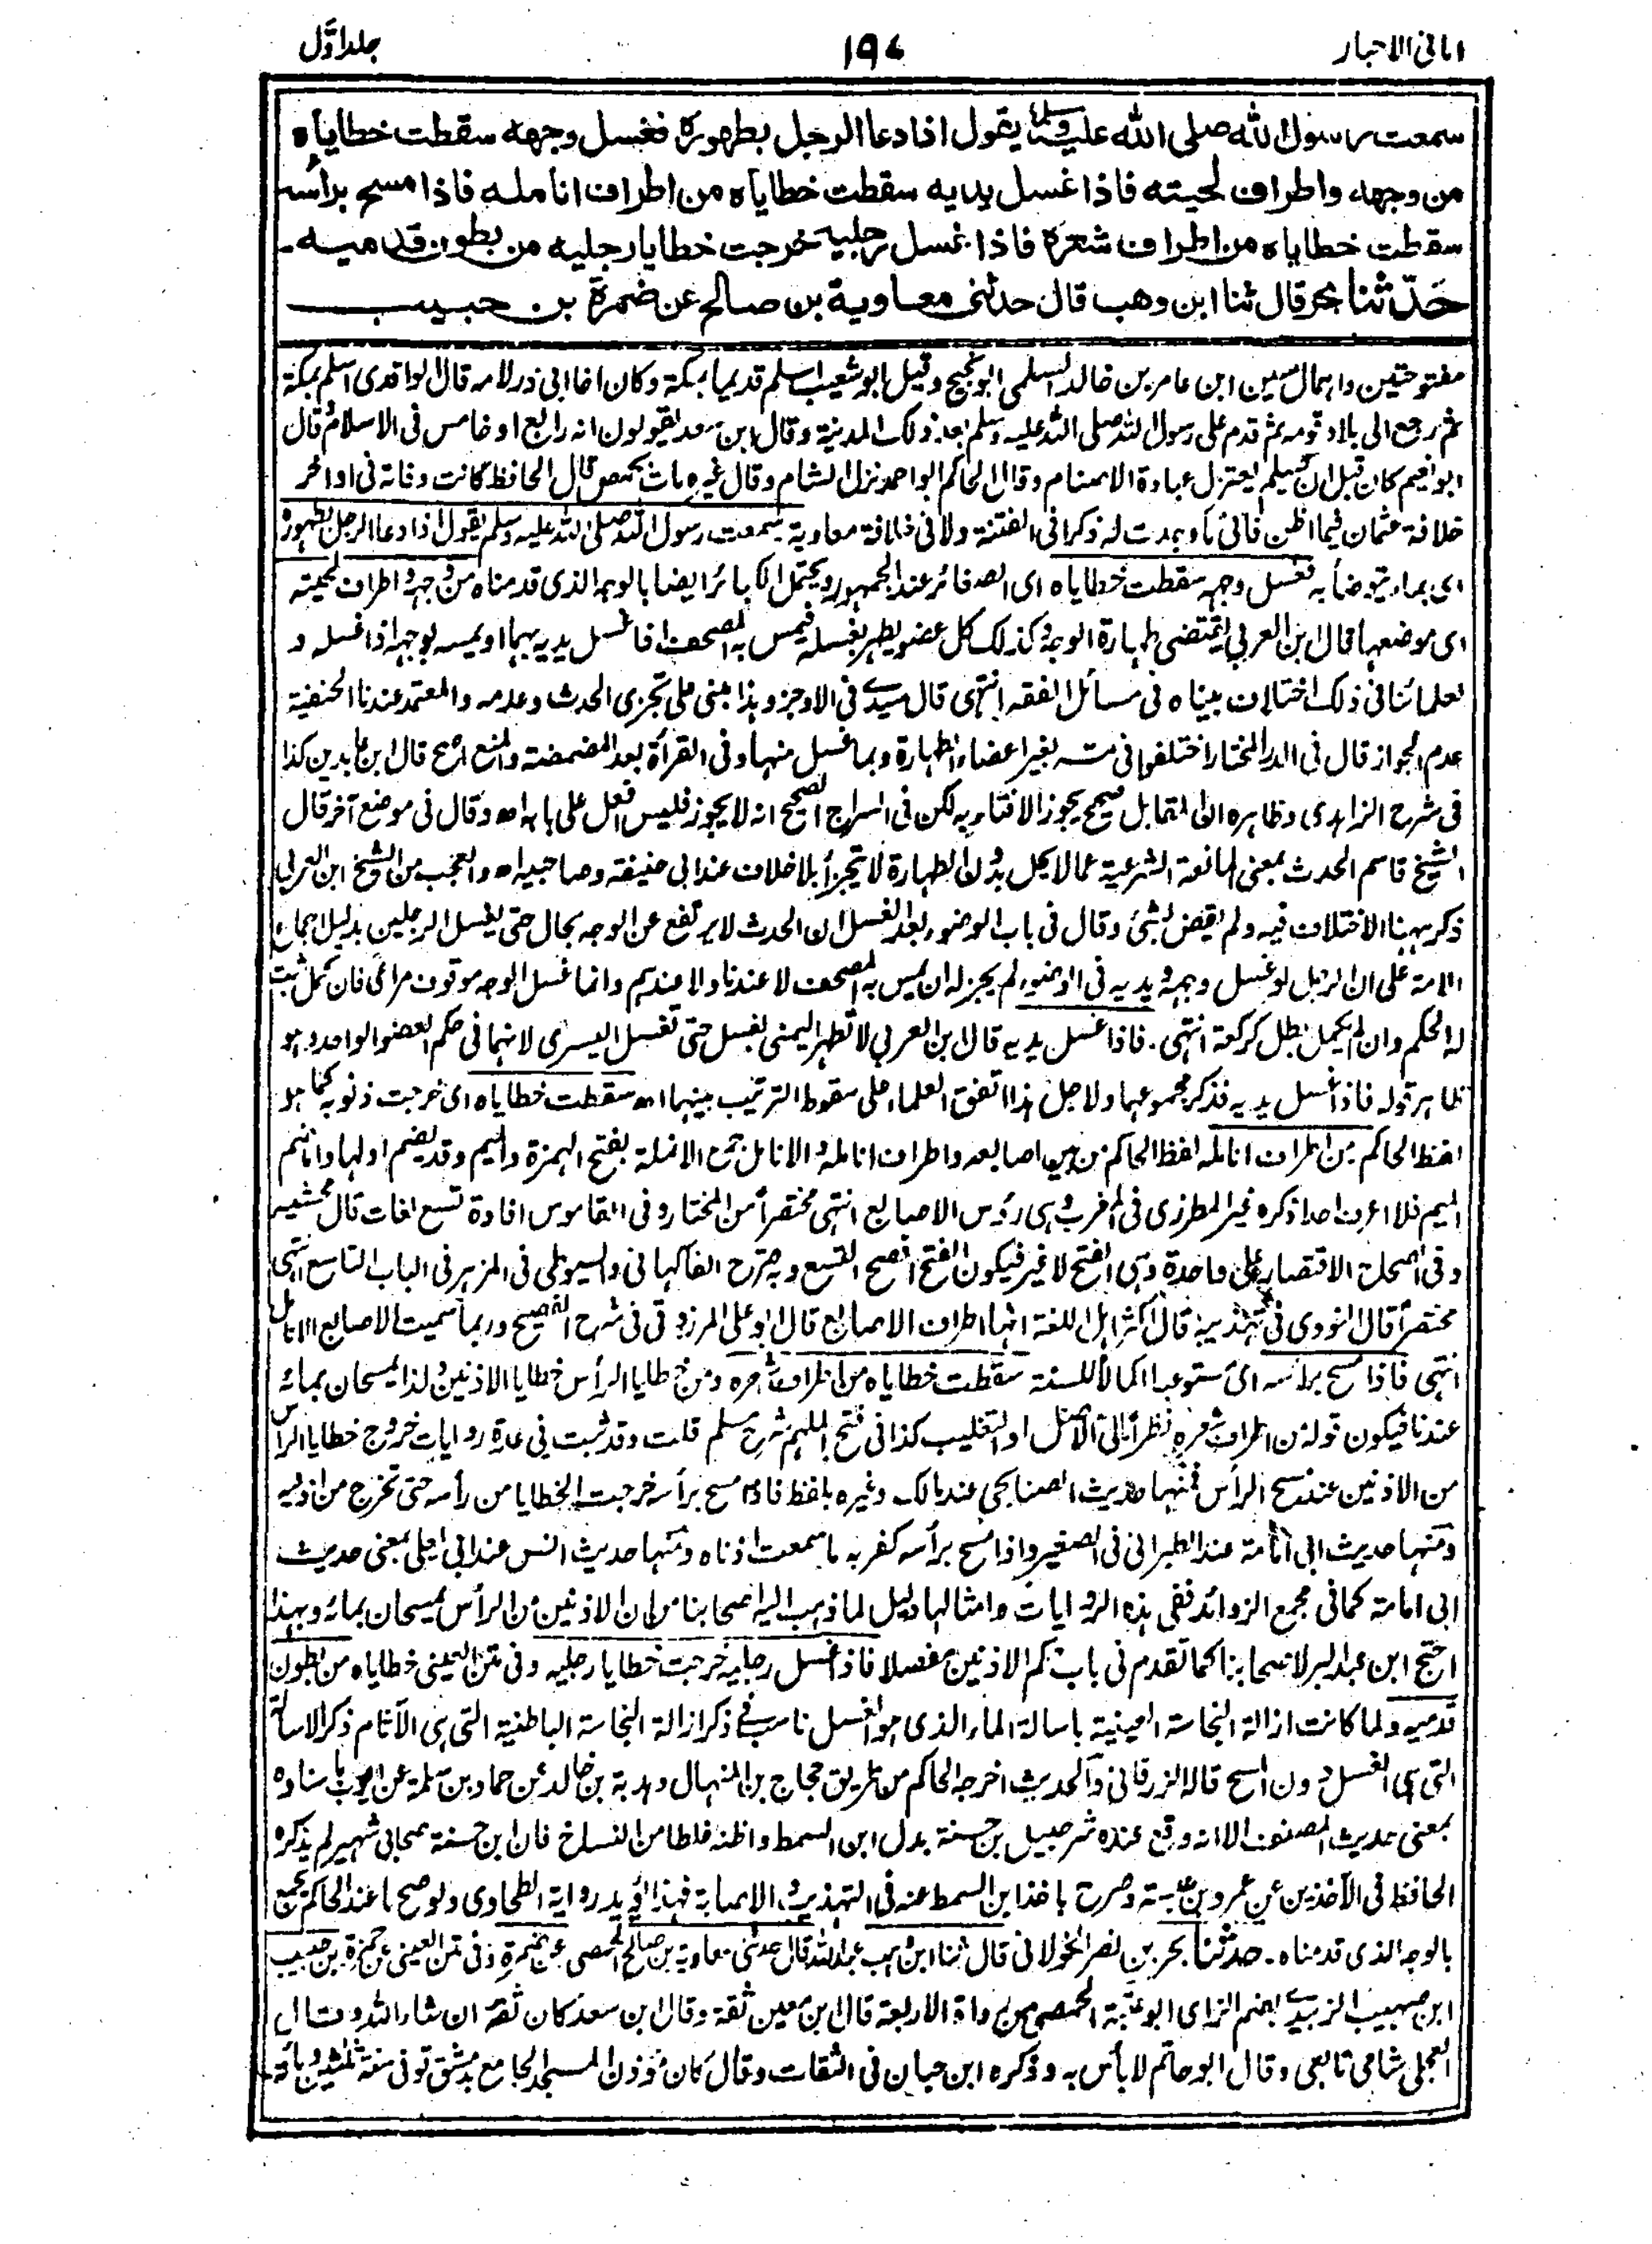 امانی الاحبار ١٩٧ جلد اوّل
سمعت رسول الله صلى الله عليه وسلم يقول اذا دعا الرجل بطهوره فغسل وجهه سقطت خطاياه
من وجهه واطراف لحيته فاذا غسل يديه سقطت خطاياه من اطراف انامله فاذا مسح برأسه
سقطت خطاياه من اطراف شعره فاذا غسل رجليه خرجت خطايا رجليه من بطون قدميه۔
حَدّثنا بحر قال ثنا ابن وهب قال حدثنی معاوية بن صالح عن ضمرة بن حبيب
مفتوحتين واہمال سين ابن عامر بن خالد السلمی ابو نجيح وقيل ابو شعيب اسلم قديما بمكة وكان اخا ابی ذر لامه قال الواقدی اسلم بمكة
ثم رجع الى بلاد قومه ثم قدم على رسول الله صلى الله عليه وسلم بعد ذلك المدينة وقال ابن سعد يقولون انه رابع او خامس فی الاسلام قال
ابو نعيم كان قبل ان يسلم يعتزل عبادة الاصنام وقال الحاكم ابو احمد نزل الشام وقال غيره مات بحمص قال الحافظ كانت وفاته فی اواخر
خلافة عثمان فيما اظن فانی ما وجدت له ذكرا فی الفتنة ولا فی خلافة معاوية سمعت رسول الله صلى الله عليه وسلم يقول اذا دعا الرجل بطهوره
ای بماء يتوضأ به فغسل وجهه سقطت خطاياه ای الصغائر عند الجمہور ويحتمل الكبائر ايضا بالوجه الذی قدمناه من وجهه واطراف لحيته
ای موضعها قال ابن العربی يقتضی طہارة الوجه وكذلك كل عضو يطهر بغسله فيمس به المصحف اذا غسل يديه بهما او يمسه بوجهه اذا غسله و
لعلمائنا فی ذلك اختلاف بيناه فی مسائل الفقه انتہى قال سيدی فی الاوجز وہذا مبنی على تجزی الحدث وعدمه والمعتمد عندنا الحنفية
عدم الجواز قال فی الدر المختار اختلفوا فی مسه بغير اعضاء الطہارة وبما غسل منها وفی القرأة بعد المضمضة والمنع اصح قال ابن عابدين كذا
فی شرح الزاہدی وظاہره ان المقابل صحيح يجوز الافتاء به لكن فی السراج الصحيح انه لا يجوز فليس افعل على بابه اه وقال فی موضع آخر قال
الشيخ قاسم الحدث بمعنى المانعة الشرعية عما لا يحل بدون الطہارة لا تتجزأ بلا خلاف عند ابی حنيفة وصاحبيه اه والعجب من الشيخ ابن العربی
ذكر ہہنا الاختلاف فيه ولم يقض بشئ وقال فی باب الوضوء بعد الغسل ان الحدث لا يرتفع عن الوجه بحال حتى يغسل الرجلين بدليل اجماع
الامة على ان الرجل لو غسل وجهه ويديه فی الوضوء لم يجز له ان يمس به المصحف لا عندنا ولا عندہم وانما غسل الوجه موقوف مراعى فان كمل ثبت
له الحكم وان لم يكمل بطل كركعة انتہى۔ فاذا غسل يديه قال ابن العربی لا تطهر اليمنى بغسل حتى تغسل اليسرى لانهما فی حكم العضو الواحد وہو
ظاہر قوله فاذا غسل يديه فذكر مجموعهما ولاجل ہذا اتفق العلماء على سقوط الترتيب بينهما اه سقطت خطاياه ای خرجت ذنوبه كما ہو
لفظ الحاكم من اطراف انامله لفظ الحاكم من بين اصابعه واطراف انامله والانامل جمع الانملة بفتح الہمزة والميم وقد يضم اولها واما ضم
الميم فلا اعرف احدا ذكره غير المطرزی فی المغرب وہی رؤس الاصابع انتہى مختصراً من المختار وفی القاموس افادة تسع لغات قال محشيه
وفی المصباح الاقتصار على واحدة وہی الفتح لا غير فيكون الفتح افصح التسع وبه صرح الفاكہانی والسيوطی فی المزہر فی الباب التاسع انتہى
مختصراً قال النووی فی تہذيبه قال اكثر اہل اللغة انها اطراف الاصابع قال ابو على المرزوقی فی شرح الفصيح وربما سميت الاصابع الانامل
انتہى فاذا مسح برأسه ای مستوعبا اكمالا للسنة سقطت خطاياه من اطراف شعره ومن خطايا الرأس خطايا الاذنين ولذا يمسحان بمائه
عندنا فيكون قوله من اطراف شعره نظراً الى الاصل او التغليب كذا فی فتح الملہم شرح مسلم قلت وقد ثبت فی عدة روايات خروج خطايا الرأس
من الاذنين عند مسح الرأس فمنها حديث الصنابحی عند مالك وغيره بلفظ فاذا مسح برأسه خرجت الخطايا من رأسه حتى تخرج من اذنيه
ومنها حديث ابی امامة عند الطبرانی فی الصغير واذا مسح برأسه كفر به ما سمعت اذناه ومنها حديث انس عند ابی يعلى بمعنى حديث
ابی امامة كما فی مجمع الزوائد ففی ہذه الروايات وامثالها دليل لما ذہب اليه اصحابنا من ان الاذنين من الرأس يمسحان بمائه وبهذا
احتج ابن عبد البر لاصحابنا كما تقدم فی باب حكم الاذنين مفصلا فاذا غسل رجليه خرجت خطايا رجليه وفی متن العينی خطاياه من بطون
قدميه ولما كانت ازالة النجاسة العينية باسالة الماء الذی ہو الغسل ناسب فی ذكر ازالة النجاسة الباطنية التی ہی الآثام ذكر الاسالة
التی ہی الغسل دون المسح قاله الزرقانی والحديث اخرجه الحاكم من طريق حجاج بن المنہال وہدبة بن خالد عن حماد بن سلمة عن ايوب باسناده
بمعنى حديث المصنف الا انه وقع عنده شرحبيل بن حسنة بدل ابن السمط واظنه غلطا من النساخ فان ابن حسنة صحابی شہير لم يذكره
الحافظ فی الآخذين عن عمرو بن عبسة وصرح باخذ ابن السمط عنه فی التہذيب والاصابة فہذا يؤيد رواية الطحاوی ولو صح ما عند الحاكم يجمع
بالوجه الذی قدمناه۔ حدثنا بحر بن نصر الخولانی قال ثنا ابن وہب عبد الله قال حدثنی معاوية بن صالح الحمصی عن ضمرة وفی متن العينی عن حمزة بن حبيب
ابن صہيب الزبيدی بضم الزای ابو عتبة الحمصی من رواة الاربعة قال ابن معين ثقة وقال ابن سعد كان ثقة ان شاء الله وقال
العجلی شامی تابعی وقال ابو حاتم لا بأس به وذكره ابن حبان فی الثقات وقال كان مؤذن المسجد الجامع بدمشق توفی سنة ثلثين ومائة